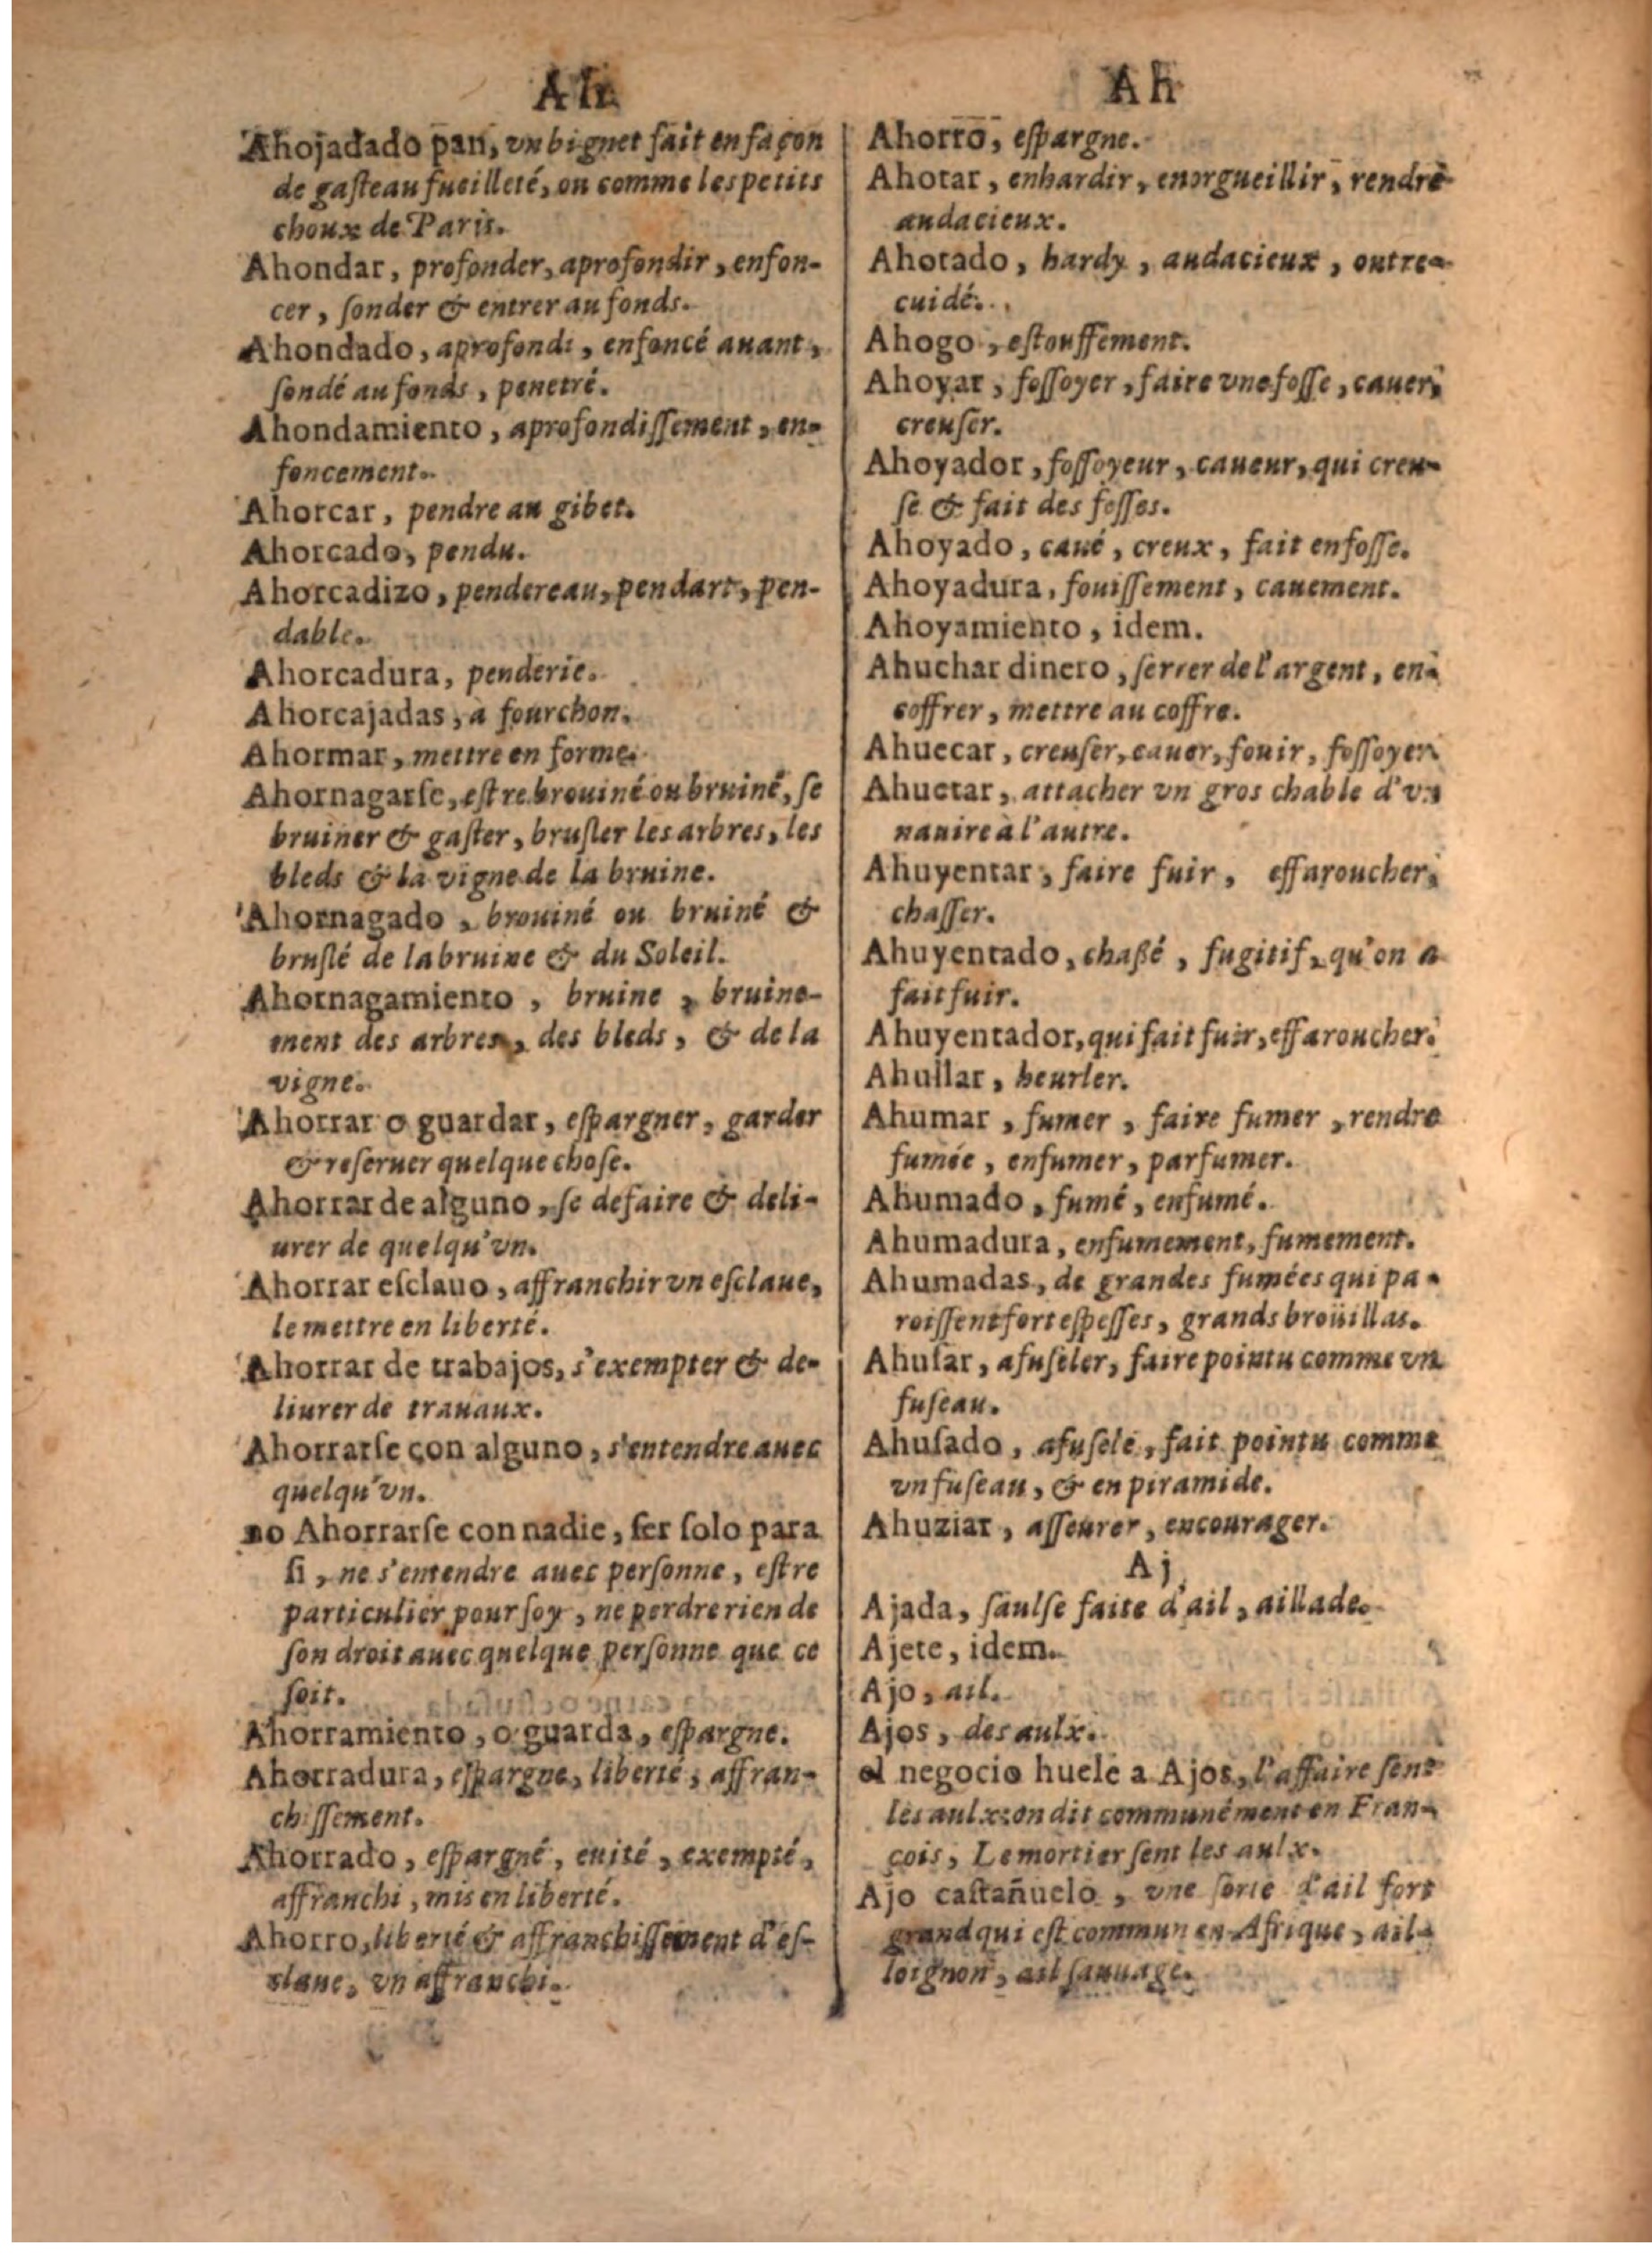 Ah
Ahojadado pan, vn bignet fait en façon
de gasteau fueilleté, ou comme les petits
choux de Paris.
Ahondar, profonder, aprofondir, enfon-
cer, sonder & entrer au fonds.
Ahondado, aprofondi, enfoncé auant,
sondé au fonds, penetré.
Ahondamiento, aprofondissement, en-
foncement.
Ahorcar, pendre au gibet.
Ahorcado, pendu.
Ahorcadizo, pendereau, pendart, pen-
dable.
Ahorcadura, penderie.
Ahorcajadas, a fourchon.
Ahormar, mettre en forme.
Ahornagarse, estre brouiné ou bruiné, se
bruiner & gaster, brusler les arbres, les
bleds & la vigne de la bruine.
Ahornagado, brouiné ou bruiné &
bruslé de la bruine & du Soleil.
Ahornagamiento, bruine, bruine-
ment des arbres, des bleds, & de la
vigne.
Ahorrar o guardar, espargner, garder
& reseruer quelque chose.
Ahorrar de alguno, se defaire & deli-
urer de quelqu'vn.
Ahorrar esclauo, affranchir vn esclaue,
le mettre en liberté.
Ahorrar de trabajos, s'exempter & de-
liurer de trauaux.
Ahorrarse con alguno, s'entendre auec
quelqu'vn.
no Ahorrarse con nadie, ser solo para
si, ne s'entendre auec personne, estre
particulier pour soy, ne perdre rien de
son droit auec quelque personne que ce
soit.
Ahorramiento, o guarda, espargne.
Ahorradura, espargne, liberté, affran-
chissement.
Ahorrado, espargné, euité, exempté,
affranchi, mis en liberté.
Ahorro, liberté & affranchissement d'es-
claue, vn affranchi.
Ah
Ahorro, espargne.
Ahotar, enhardir, enorgueillir, rendre
audacieux.
Ahotado, hardy, audacieux, outre-
cuidé.
Ahogo, estouffement.
Ahoyar, fossoyer, faire vne fosse, cauer,
creuser.
Ahoyador, fossoyeur, caueur, qui creu-
se & fait des fosses.
Ahoyado, caué, creux, fait en fosse.
Ahoyadura, fouissement, cauement.
Ahoyamiento, idem.
Ahuchar dinero, serrer de l'argent, en-
coffrer, mettre au coffre.
Ahuecar, creuser, cauer, fouir, fossoyer.
Ahuctar, attacher vn gros chable d'vn
nauire à l'autre.
Ahuyentar, faire fuir, effaroucher,
chasser.
Ahuyentado, chaßé, fugitif, qu'on a
fait fuir.
Ahuyentador, qui fait fuir, effaroucher.
Ahullar, heurler.
Ahumar, fumer, faire fumer, rendre
fumée, enfumer, parfumer.
Ahumado, fumé, enfumé.
Ahumadura, enfumement, fumement.
Ahumadas, de grandes fumées qui pa-
roissent fort espesses, grands broüillas.
Ahusar, afuseler, faire pointu comme vn
fuseau.
Ahusado, afuselé, fait pointu comme
vn fuseau, & en piramide.
Ahuziar, asseurer, encourager.
Aj
Ajada, saulse faite d'ail, aillade.
Ajete, idem.
Ajo, ail.
Ajos, des aulx.
el negocio huele a Ajos, l'affaire sent
les aulx: on dit communément en Fran-
çois, Le mortier sent les aulx.
Ajo castañuelo, vne sorte d'ail fort
grand qui est commun en Afrique, ail-
loignon, ail sauuage.